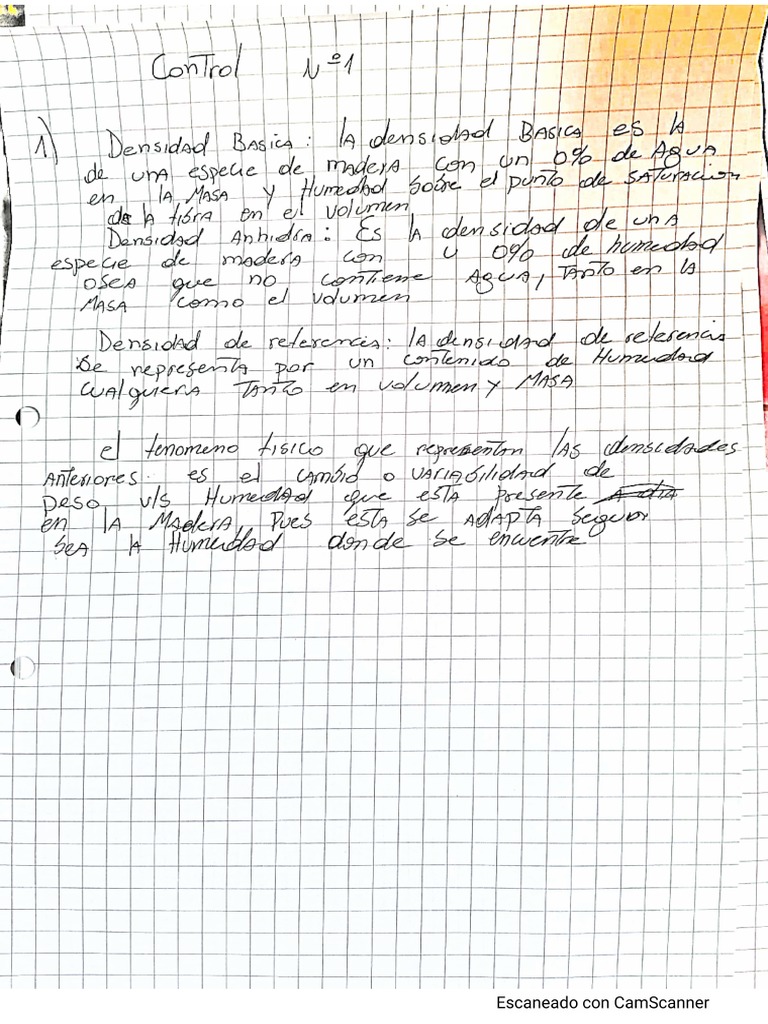 Control Nº1
1) Densidad Basica: la densidad Basica es la
de una especie de madera con un 0% de Agua
en la Masa y Humedad sobre el punto de saturacion
de la fibra en el volumen
Densidad Anhidra: Es la densidad de una
especie de madera con u 0% de humedad
osea que no contiene Agua, tanto en la
Masa como el volumen
Densidad de referencia: la densidad de referencia
se representa por un contenido de Humedad
cualquiera tanto en volumen y Masa
el fenomeno fisico que representan las densidades
Anteriores es el cambio o variabilidad de
Peso v/s Humedad que esta presente
en la Madera, Pues esta se adapta segun
sea la Humedad donde se encuentre
Escaneado con CamScanner